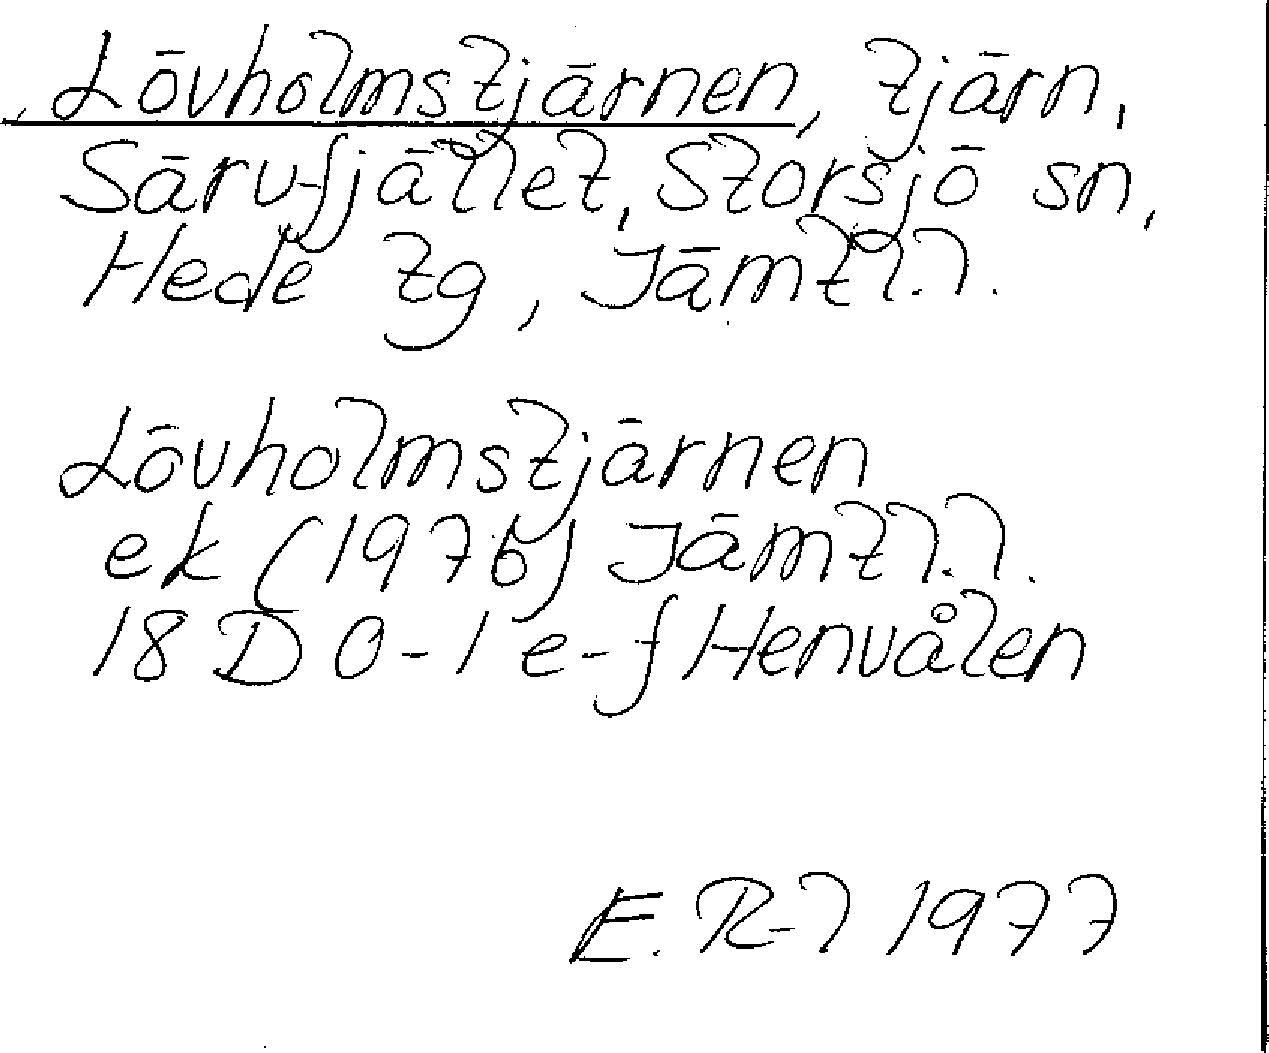 Lövholmstjärnen, tjärn,
Särvfjället, Storsjö sn,
Hede tg, Jämtl.l.
Lövholmstjärnen
ek (1976) Jämtl.l.
18 D 0-1 e-f Henvålen
E. R-l 1977